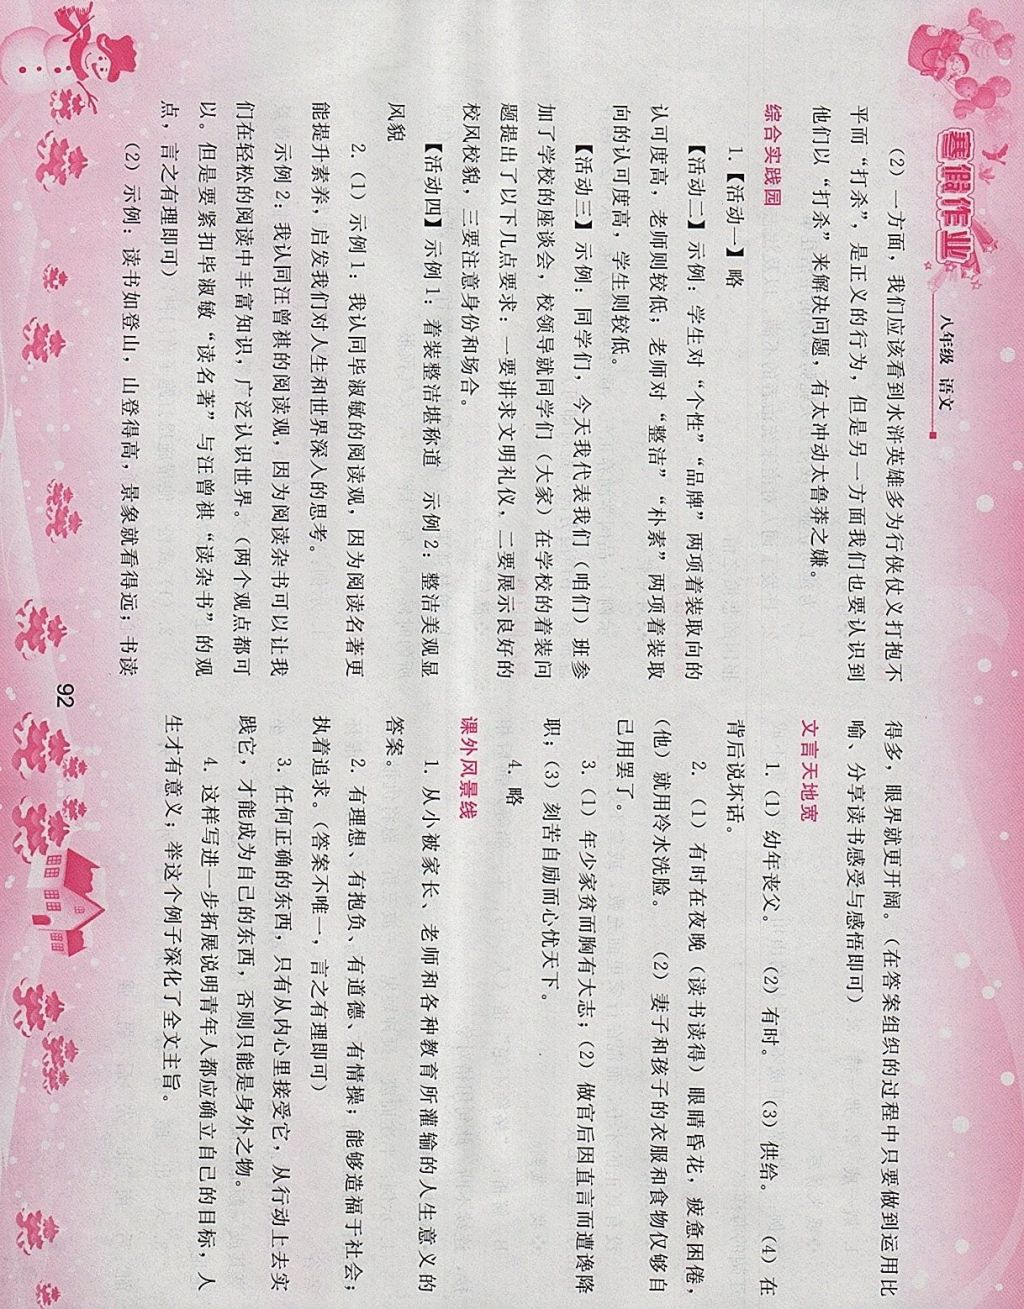 寒假作业
八年级 语文
(2)一方面，我们应该看到水浒英雄多为行侠仗义打抱不
平而“打杀”，是正义的行为，但是另一方面我们也要认识到
他们以“打杀”来解决问题，有太冲动太鲁莽之嫌。
综合实践园
1.【活动一】略
【活动二】示例：学生对“个性”“品牌”两项着装取向的
认可度高，老师则较低；老师对“整洁”“朴素”两项着装取
向的认可度高，学生则较低。
【活动三】示例：同学们，今天我代表我们(咱们)班参
加了学校的座谈会，校领导就同学们(大家)在学校的着装问
题提出了以下几点要求：一要讲求文明礼仪，二要展示良好的
校风校貌，三要注意身份和场合。
【活动四】示例1：着装整洁堪称道 示例2：整洁美观显
风貌
2.(1)示例1：我认同毕淑敏的阅读观，因为阅读名著更
能提升素养，启发我们对人生和世界深入的思考。
示例2：我认同汪曾祺的阅读观，因为阅读杂书可以让我
们在轻松的阅读中丰富知识，广泛认识世界。(两个观点都可
以。但是要紧扣毕淑敏“读名著”与汪曾祺“读杂书”的观
点，言之有理即可)
(2)示例：读书如登山，山登得高，景象就看得远；书读
得多，眼界就更开阔。(在答案组织的过程中只要做到运用比
喻、分享读书感受与感悟即可)
文言天地宽
1.(1)幼年丧父。 (2)有时。 (3)供给。 (4)在
背后说坏话。
2.(1)有时在夜晚(读书读得)眼睛昏花，疲惫困倦，
(他)就用冷水洗脸。 (2)妻子和孩子的衣服和食物仅够自
己用罢了。
3.(1)年少家贫而胸有大志；(2)做官后因直言而遭谗降
职；(3)刻苦自励而心忧天下。
4.略
课外风景线
1.从小被家长、老师和各种教育所灌输的人生意义的
答案。
2.有理想、有抱负、有道德、有情操；能够造福于社会；
执着追求。(答案不唯一，言之有理即可)
3.任何正确的东西，只有从内心里接受它，从行动上去实
践它，才能成为自己的东西，否则只能是身外之物。
4.这样写进一步拓展说明青年人都应确立自己的目标，人
生才有意义；举这个例子深化了全文主旨。
92